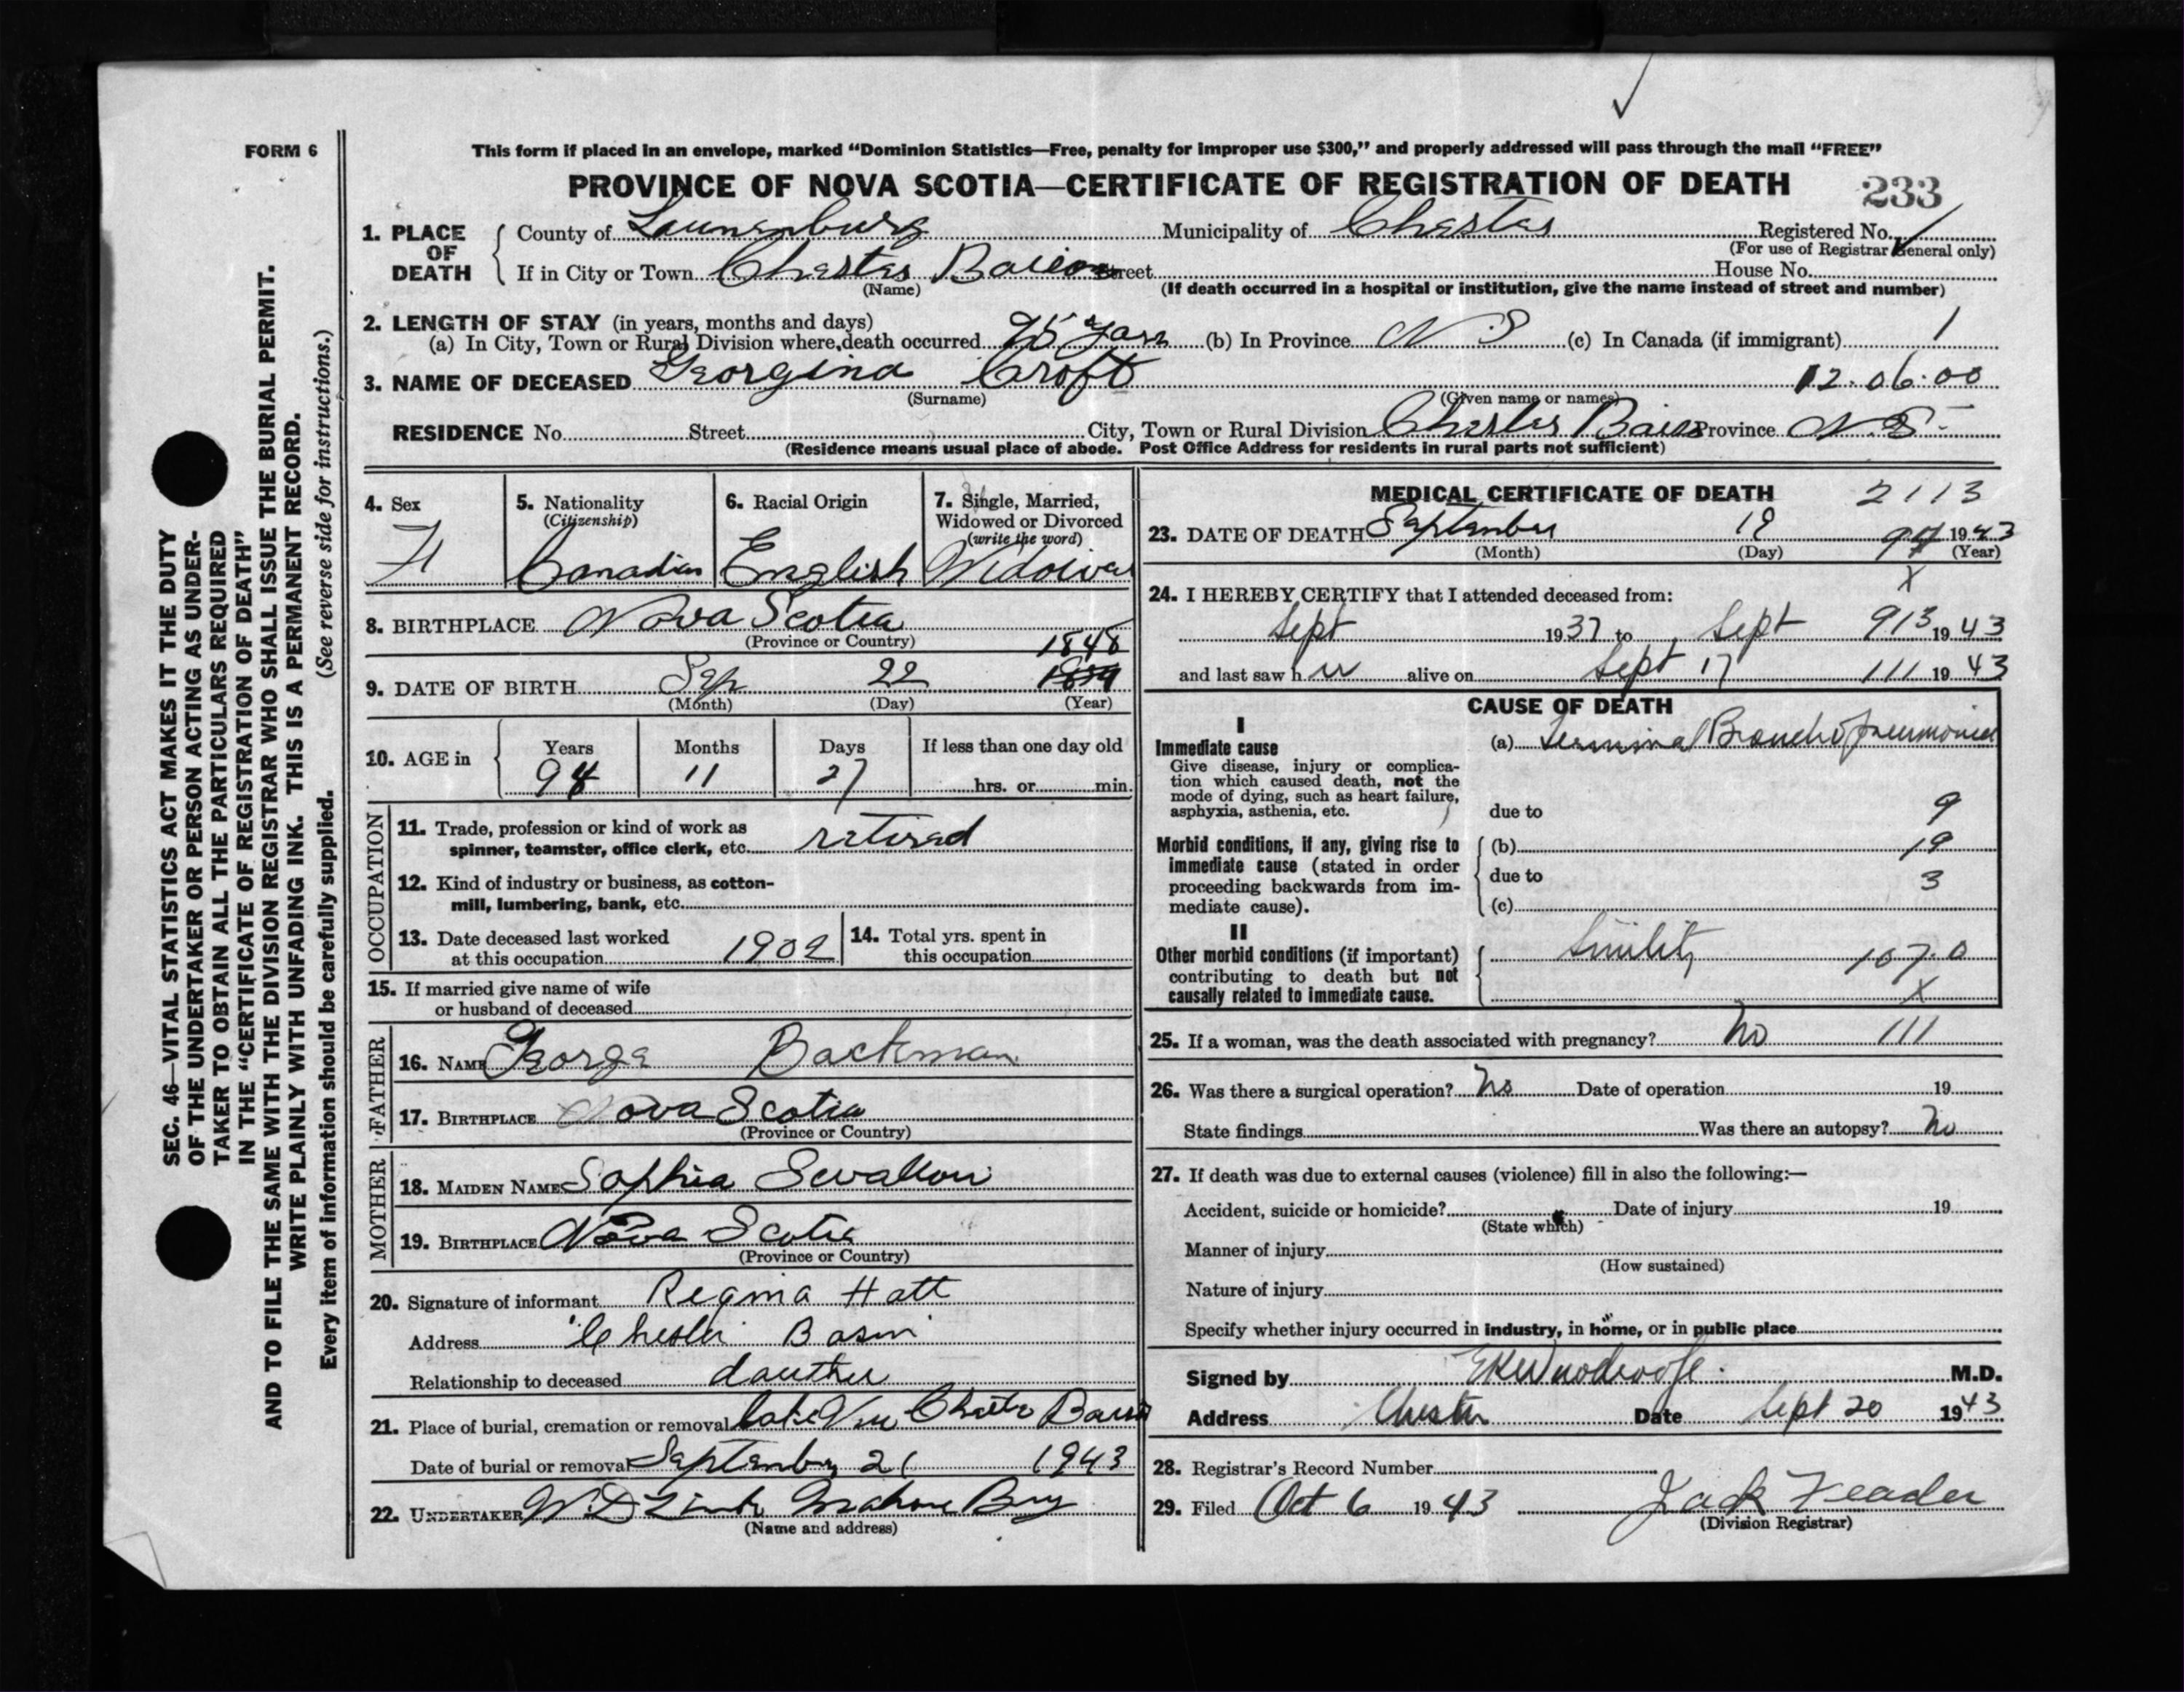 FORM 6
This form if placed in an envelope, marked “Dominion Statistics—Free, penalty for improper use $300,” and properly addressed will pass through the mail “FREE”
PROVINCE OF NOVA SCOTIA—CERTIFICATE OF REGISTRATION OF DEATH 233
1. PLACE OF DEATH County of Lunenburg Municipality of Chester Registered No.
(For use of Registrar General only)
If in City or Town Chester Basin Street House No.
(Name) (If death occurred in a hospital or institution, give the name instead of street and number)
2. LENGTH OF STAY (in years, months and days)
(a) In City, Town or Rural Division where death occurred 75 years (b) In Province N S (c) In Canada (if immigrant) 1
3. NAME OF DECEASED Georgina Croft 12.06.00
(Surname) (Given name or names)
RESIDENCE No. Street City, Town or Rural Division Chester Basin Province N.S.
(Residence means usual place of abode. Post Office Address for residents in rural parts not sufficient)
4. Sex F
5. Nationality (Citizenship) Canadian
6. Racial Origin English
7. Single, Married, Widowed or Divorced (write the word) Widowed
8. BIRTHPLACE Nova Scotia
(Province or Country)
1848
9. DATE OF BIRTH Sep 22
(Month) (Day) (Year)
10. AGE in Years Months Days If less than one day old
94 11 27 hrs. or min.
OCCUPATION
11. Trade, profession or kind of work as spinner, teamster, office clerk, etc. retired
12. Kind of industry or business, as cotton-mill, lumbering, bank, etc.
13. Date deceased last worked at this occupation 1902
14. Total yrs. spent in this occupation
15. If married give name of wife or husband of deceased
FATHER
16. NAME George Backman
17. BIRTHPLACE Nova Scotia
(Province or Country)
MOTHER
18. MAIDEN NAME Sophia Swallow
19. BIRTHPLACE Nova Scotia
(Province or Country)
20. Signature of informant Regina Hatt
Address Chester Basin
Relationship to deceased dauther
21. Place of burial, cremation or removal Lake View Chester Basin
Date of burial or removal September 21 1943
22. UNDERTAKER W.D. Zink Mahone Bay
(Name and address)
MEDICAL CERTIFICATE OF DEATH 2113
23. DATE OF DEATH September 19 94 1943
(Month) (Day) (Year)
X
24. I HEREBY CERTIFY that I attended deceased from:
Sept 1937 to Sept 913 1943
and last saw her alive on Sept 17 111 1943
CAUSE OF DEATH
I
Immediate cause (a) Terminal Bronchopneumonia
Give disease, injury or complication which caused death, not the mode of dying, such as heart failure, asphyxia, asthenia, etc.
due to 9
Morbid conditions, if any, giving rise to immediate cause (stated in order proceeding backwards from immediate cause).
(b) 19
due to 3
(c)
II
Other morbid conditions (if important) contributing to death but not causally related to immediate cause.
Senility 107.0
X
25. If a woman, was the death associated with pregnancy? No 111
26. Was there a surgical operation? No Date of operation 19
State findings Was there an autopsy? No
27. If death was due to external causes (violence) fill in also the following:—
Accident, suicide or homicide? Date of injury 19
(State which)
Manner of injury
(How sustained)
Nature of injury
Specify whether injury occurred in industry, in home, or in public place
Signed by M.D.
Address Chester Date Sept 20 1943
28. Registrar's Record Number
29. Filed Oct 6 1943 Jack Feader
(Division Registrar)
SEC. 46—VITAL STATISTICS ACT MAKES IT THE DUTY
OF THE UNDERTAKER OR PERSON ACTING AS UNDER-
TAKER TO OBTAIN ALL THE PARTICULARS REQUIRED
IN THE “CERTIFICATE OF REGISTRATION OF DEATH”
AND TO FILE THE SAME WITH THE DIVISION REGISTRAR WHO SHALL ISSUE THE BURIAL PERMIT.
WRITE PLAINLY WITH UNFADING INK. THIS IS A PERMANENT RECORD.
Every item of information should be carefully supplied. (See reverse side for instructions.)